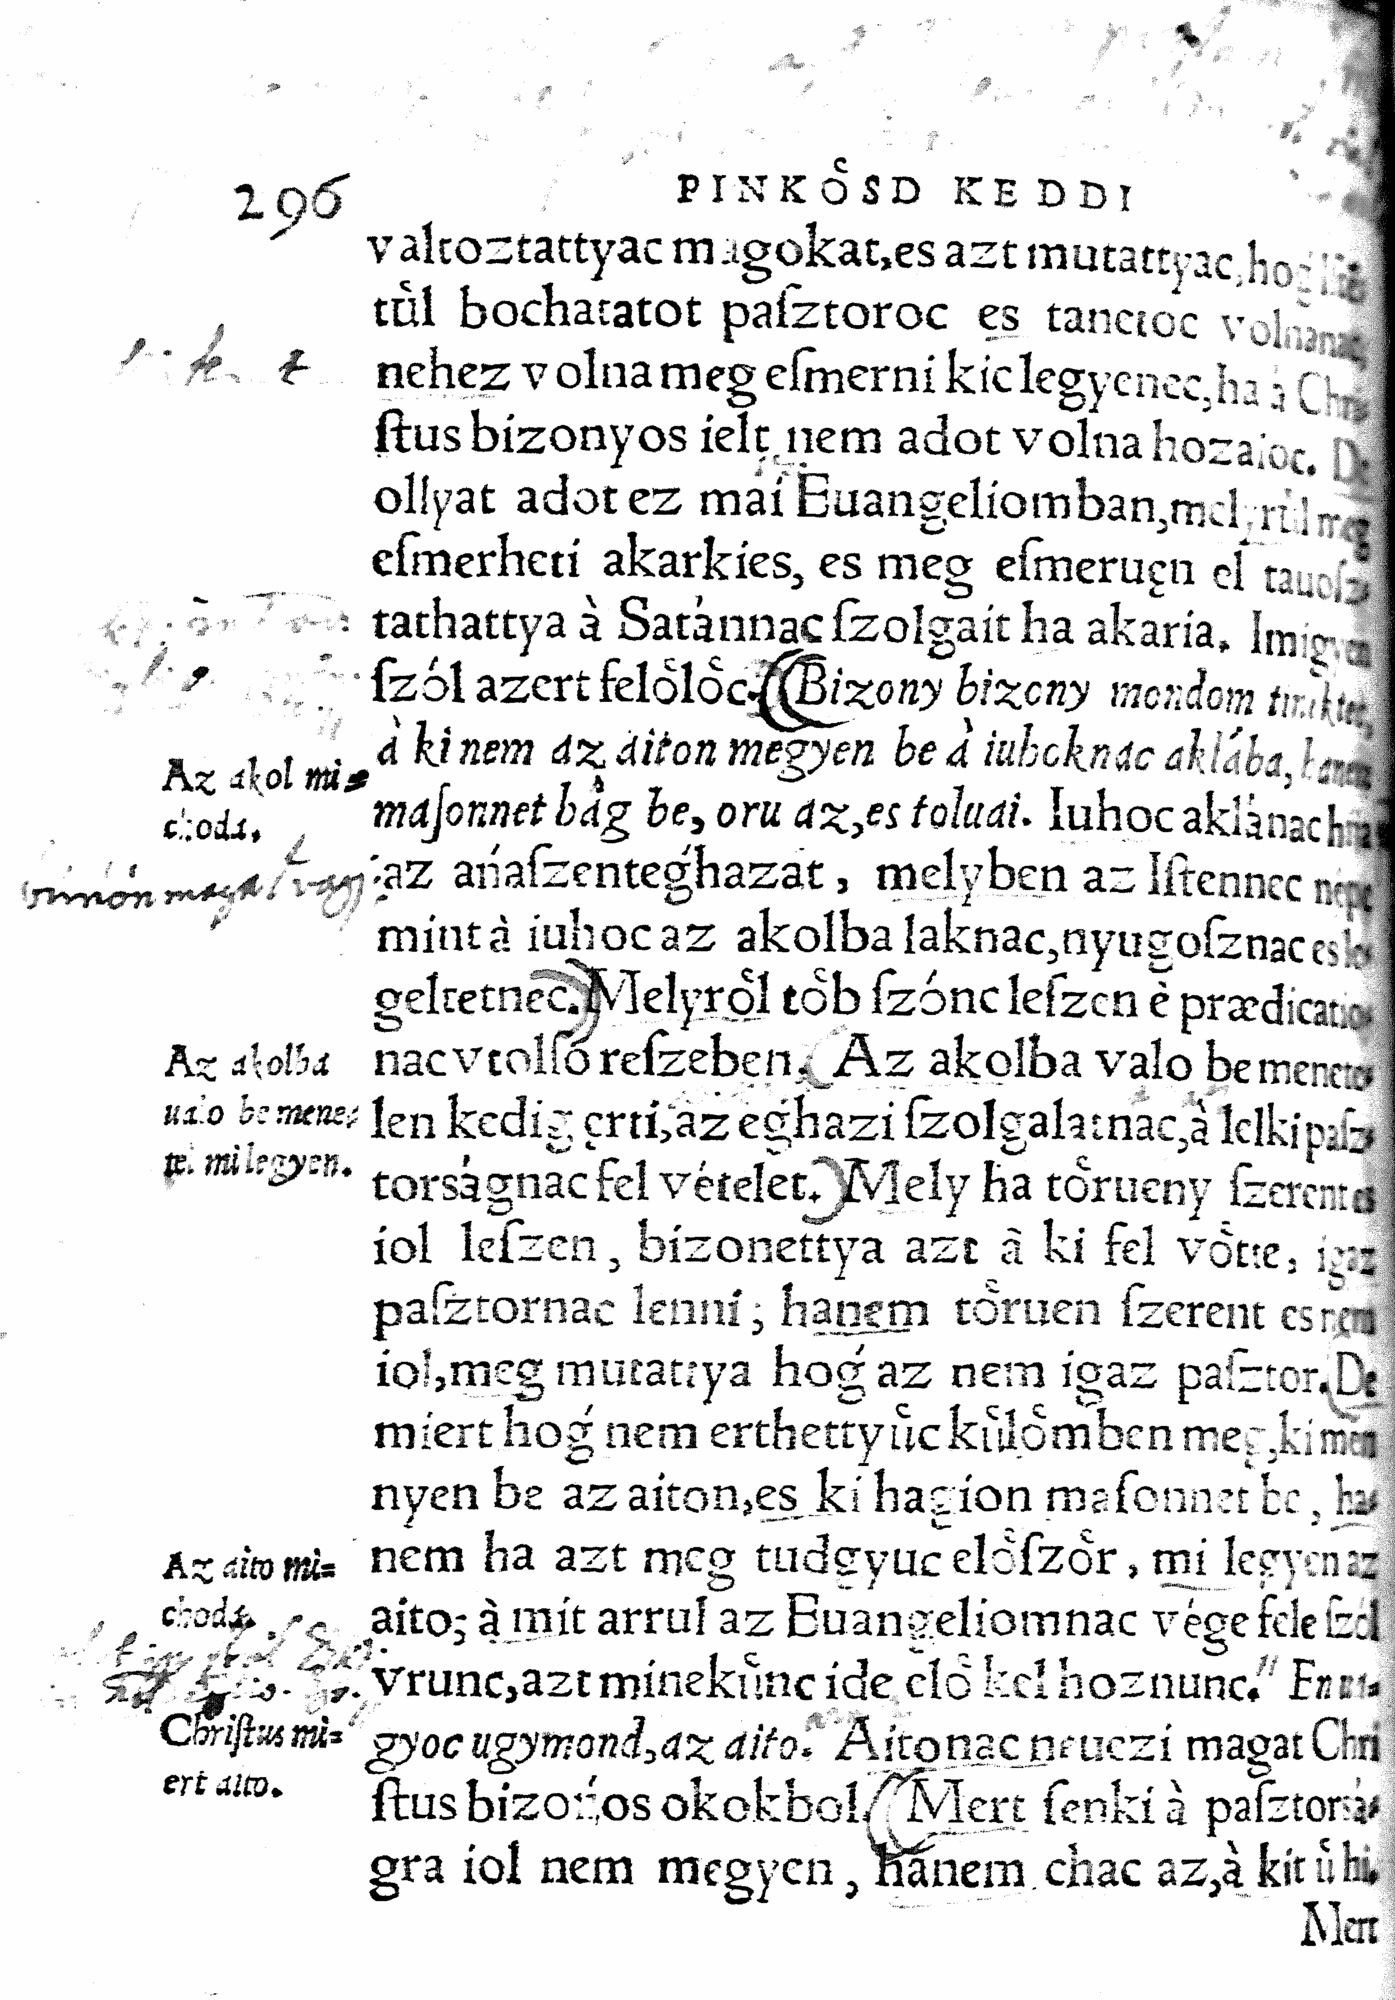 296 PINKOͤSD KEDDI
valtoztattyac magokat, es azt mutattyac,
tuͤl bochatatot paſztoroc es tanctoc volnanac,
nehez volna meg eſmerni kic legyenec, ha à Chri
ſtus bizonyos ielt nem adot volna hozaioc. De
ollyat adot ez mai Euangeliomban, melyruͤl meg
eſmerheti akarkies, es meg eſmeruęn el tauoſz-
tathattya à Satánnac ſzolgait ha akaria. Imigyen
ſzól azert feloͤloͤc. Bizony bizony mondom tinektec,
à ki nem az aiton megyen be à iuhoknac aklába, hanem
maſonnet hág be, oru az, es toluai. Iuhoc aklánac hiia
Az akol mi-
choda.
az ańaſzenteǵhazat, melyben az Iſtennec népe
mint à iuhoc az akolba laknac, nyugoſznac es le-
geltetnec. Melyroͤl toͤb ſzónc leſzen è prædicatio-
nac vtolſó reſzeben. Az akolba valo be menete-
Az akolba
ualo be mene-
tel mi legyen.
len kedig ęrti, az eǵhazi ſzolgalatnac, à lelki paſz-
torságnac fel vételet. Mely ha toͤrueny ſzerent es
iol leſzen, bizonettya azt à ki fel voͤtte, igaz
paſztornac lenni; hanem toͤruen ſzerent es nem
iol, meg mutattya hoǵ az nem igaz paſztor. De
miert hoǵ nem erthettyuͤc kuͤloͤmben meg, ki men
nyen be az aiton, es ki hagion maſonnet be, ha-
nem ha azt meg tudgyuc eloͤſzoͤr, mi legyen az
Az aito mi-
choda.
aito; à mit arrul az Euangeliomnac vége fele ſzól
Vrunc, azt minekuͤnc ide eloͤ kel hoznunc. En ui-
gyoc ugymond, az aito. Aitonac neuezi magat Chri
Chriſtus mi-
ert aito.
ſtus bizońos okokbol. Mert ſenki à paſztorsá-
gra iol nem megyen, hanem chac az, à kit uͤ hi.
Mert